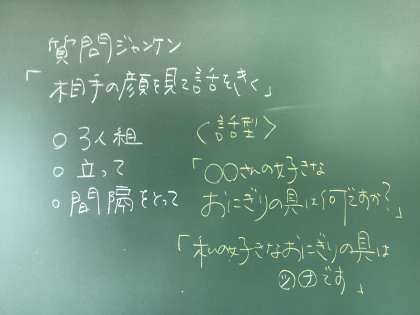 質問ジャンケン
「相手の顔を見て話をきく」
○ 3人組
○ 立って
○ 間隔をとって
〈話型〉
「○○さんの好きな
おにぎりの具は何ですか?」
「私の好きなおにぎりの具は
㋡㋤です」